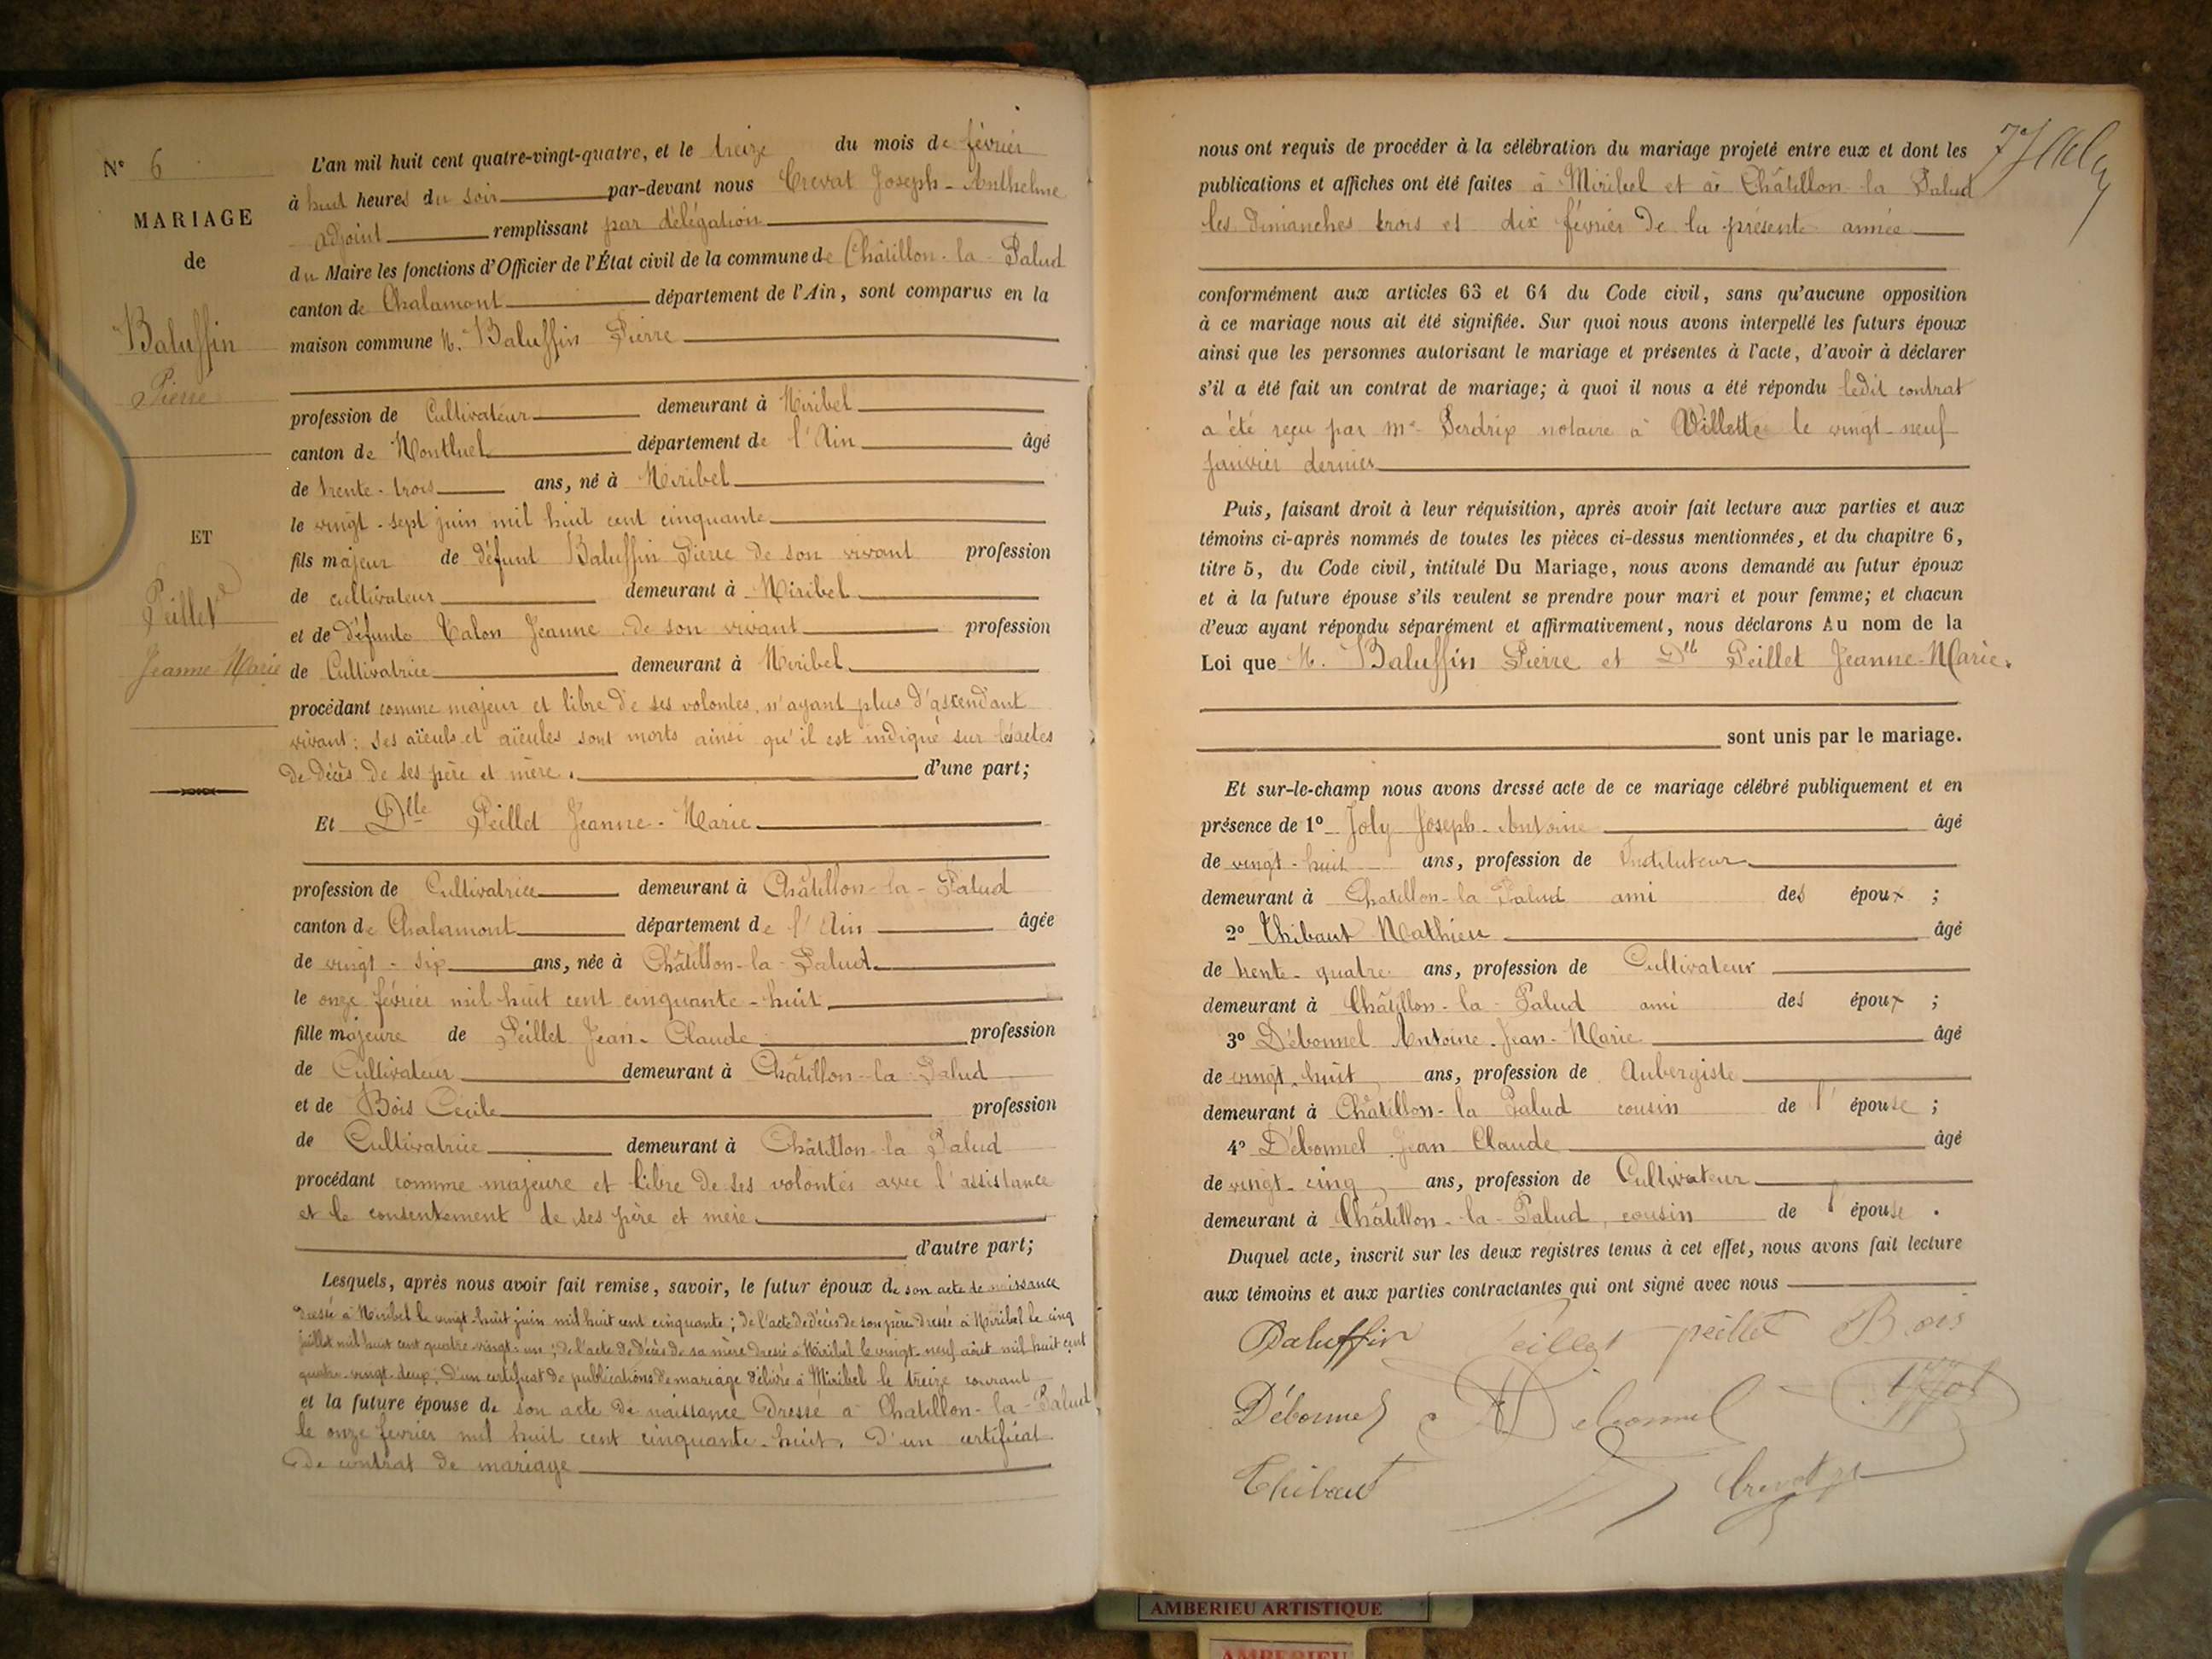 N° 6
MARIAGE
de
Baluffin
Pierre
ET
Peillet
Jeanne Marie
L'an mil huit cent quatre-vingt-quatre, et le treize du mois de février
à huit heures du soir par-devant nous Crevat Joseph-Anthelme
adjoint remplissant par délégation
du Maire les fonctions d'Officier de l'État civil de la commune de Châtillon-la-Palud
canton de Chalamont département de l'Ain, sont comparus en la
maison commune M. Baluffin Pierre
profession de Cultivateur demeurant à Miribel
canton de Montluel département de l'Ain âgé
de trente-trois ans, né à Miribel
le vingt-sept juin mil huit cent cinquante
fils majeur de défunt Baluffin Pierre de son vivant profession
de cultivateur demeurant à Miribel
et de défunte Talon Jeanne de son vivant profession
de Cultivatrice demeurant à Miribel
procédant comme majeur et libre de ses volontés, n'ayant plus d'ascendant
vivant: ses aïeuls et aïeules sont morts ainsi qu'il est indiqué sur les actes
de décès de ses père et mère. d'une part;
Et Dlle Peillet Jeanne-Marie
profession de Cultivatrice demeurant à Châtillon-la-Palud
canton de Chalamont département de l'Ain âgée
de vingt-six ans, née à Châtillon-la-Palud
le onze février mil huit cent cinquante-huit
fille majeure de Peillet Jean-Claude profession
de Cultivateur demeurant à Châtillon-la-Palud
et de Bois Cécile profession
de Cultivatrice demeurant à Châtillon-la Palud
procédant comme majeure et libre de ses volontés avec l'assistance
et le consentement de ses père et mère
d'autre part;
Lesquels, après nous avoir fait remise, savoir, le futur époux de son acte de naissance
dressé à Miribel le vingt-huit juin mil huit cent cinquante; de l'acte de décès de son père dressé à Miribel le cinq
juillet mil huit cent quatre-vingt-un; de l'acte de décès de sa mère dressé à Miribel le vingt-neuf août mil huit cent
quatre-vingt-deux. D'un certificat de publications de mariage délivré à Miribel le treize courant
et la future épouse de son acte de naissance dressé à Chatillon-la-Palud
le onze février mil huit cent cinquante-huit. D'un certificat
de contrat de mariage
nous ont requis de procéder à la célébration du mariage projeté entre eux et dont les
publications et affiches ont été faites à Miribel et à Châtillon la Palud
les dimanches trois et dix février de la présente année
conformément aux articles 63 et 64 du Code civil, sans qu'aucune opposition
à ce mariage nous ait été signifiée. Sur quoi nous avons interpellé les futurs époux
ainsi que les personnes autorisant le mariage et présentes à l'acte, d'avoir à déclarer
s'il a été fait un contrat de mariage; à quoi il nous a été répondu ledit contrat
a été reçu par Me Perdrix notaire à Villette le vingt-neuf
janvier dernier
Puis, faisant droit à leur réquisition, après avoir fait lecture aux parties et aux
témoins ci-après nommés de toutes les pièces ci-dessus mentionnées, et du chapitre 6,
titre 5, du Code civil, intitulé Du Mariage, nous avons demandé au futur époux
et à la future épouse s'ils veulent se prendre pour mari et pour femme; et chacun
d'eux ayant répondu séparément et affirmativement, nous déclarons Au nom de la
Loi que M. Baluffin Pierre et Dlle Peillet Jeanne-Marie.
sont unis par le mariage.
Et sur-le-champ nous avons dressé acte de ce mariage célébré publiquement et en
présence de 1° Joly Joseph-Antoine âgé
de vingt-huit ans, profession de Instituteur
demeurant à Chatillon-la Palud ami des époux ;
2° Thibaut Mathieu âgé
de trente-quatre ans, profession de Cultivateur
demeurant à Châtillon-la-Palud ami des époux ;
3° Débonnel Antoine-Jean-Marie âgé
de vingt-huit ans, profession de Aubergiste
demeurant à Châtillon-la Palud cousin de l'épouse ;
4° Débonnel Jean Claude âgé
de vingt-cinq ans, profession de Cultivateur
demeurant à Châtillon-la-Palud, cousin de l'épouse .
Duquel acte, inscrit sur les deux registres tenus à cet effet, nous avons fait lecture
aux témoins et aux parties contractantes qui ont signé avec nous
Baluffin Peillet peillet Bois
Débonnel Debonnel
Thibaut Crevat
AMBERIEU ARTISTIQUE
AMBERIEU